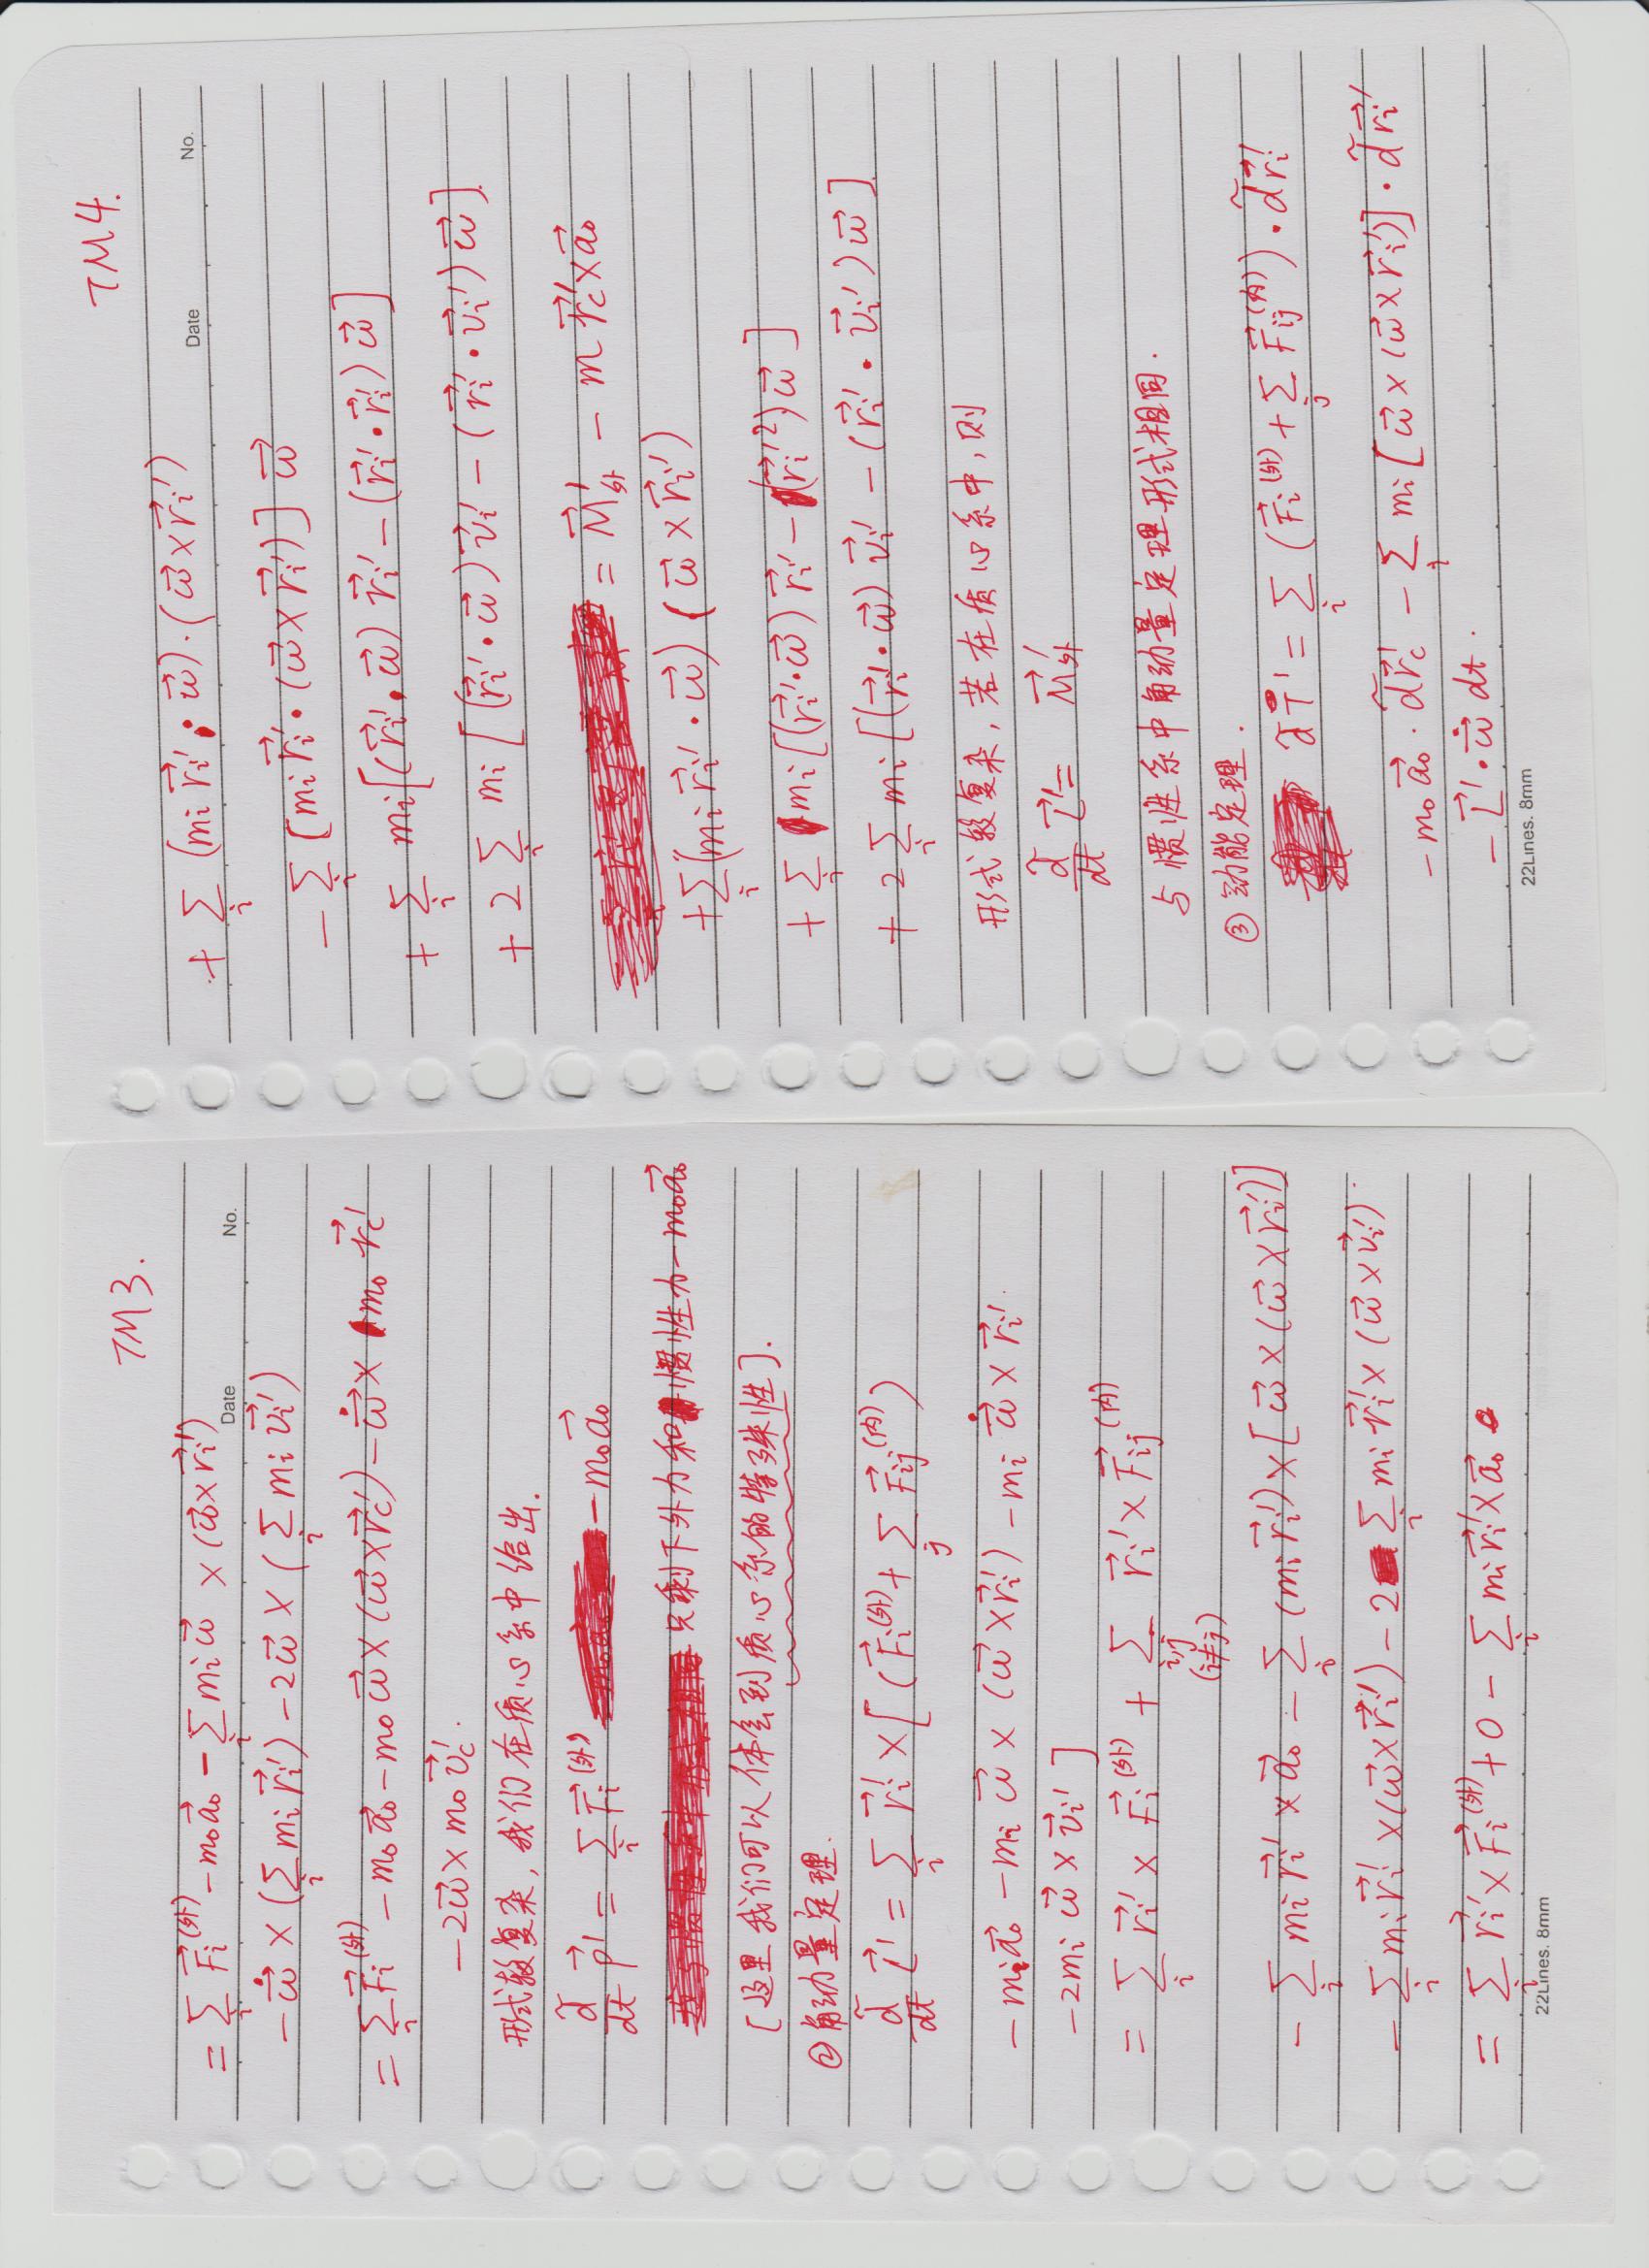 TM3.
= ∑_i F⃗_i^(外) - m₀a⃗₀ - ∑_i m_i ω⃗ × (ω⃗×r⃗_i′)
Date No.
- ω⃗̇ × (∑_i m_i r⃗_i′) - 2ω⃗ × (∑_i m_i v⃗_i′)
= ∑_i F⃗_i^(外) - m₀a⃗₀ - m₀ ω⃗ × (ω⃗×r⃗_c′) - ω⃗̇ × m₀ r⃗_c′
- 2ω⃗ × m₀ v⃗_c′.
形式较复杂, 我们在质心系中给出.
d̃/dt p⃗′ = ∑_i F⃗_i^(外) - m₀a⃗₀
只剩下外力和惯性力 - m₀a⃗₀
[这里我们可以体会到质心系的特殊性].
② 角动量定理.
d̃/dt L⃗′ = ∑_i r⃗_i′ × [(F⃗_i^(外) + ∑_j F⃗_ij^(内))
- m_i a⃗₀ - m_i ω⃗ × (ω⃗×r⃗_i′) - m_i ω⃗̇ × r⃗_i′.
- 2m_i ω⃗ × v⃗_i′]
= ∑_i r⃗_i′ × F⃗_i^(外) + ∑_{i,j (i≠j)} r⃗_i′ × F⃗_ij^(内)
- ∑_i m_i r⃗_i′ × a⃗₀ - ∑_i (m_i r⃗_i′) × [ω⃗ × (ω⃗×r⃗_i′)]
- ∑_i m_i r⃗_i′ × (ω⃗×r⃗_i′) - 2 ∑_i m_i r⃗_i′ × (ω⃗×v⃗_i′).
= ∑_i r⃗_i′ × F⃗_i^(外) + 0 - ∑_i m_i r⃗_i′ × a⃗₀
22Lines. 8mm
TM4.
+ ∑_i (m_i r⃗_i′ · ω⃗) · (ω⃗×r⃗_i′)
Date No.
- ∑_i [m_i r⃗_i′ · (ω⃗×r⃗_i′)] ω⃗
+ ∑_i m_i [(r⃗_i′ · ω⃗) r⃗_i′ - (r⃗_i′ · r⃗_i′) ω⃗]
+ 2 ∑_i m_i [(r⃗_i′ · ω⃗) v⃗_i′ - (r⃗_i′ · v⃗_i′) ω⃗].
= M⃗′_外 - m r⃗_c′ × a⃗₀
+ ∑_i (m_i r⃗_i′ · ω⃗) (ω⃗×r⃗_i′)
+ ∑_i m_i [(r⃗_i′ · ω⃗) r⃗_i′ - (r⃗_i′²) ω⃗]
+ 2 ∑_i m_i [(r⃗_i′ · ω⃗) v⃗_i′ - (r⃗_i′ · v⃗_i′) ω⃗].
形式较复杂, 若在质心系中, 则
d̃/dt L⃗′ = M⃗′_外
与惯性系中角动量定理形式相同.
③ 动能定理.
d̃T′ = ∑_i (F⃗_i^(外) + ∑_j F⃗_ij^(内)) · d̃r⃗_i′
- m₀ a⃗₀ · d̃r⃗_c′ - ∑_i m_i [ω⃗ × (ω⃗×r⃗_i′)] · d̃r⃗_i′
- L⃗′ · ω⃗̇ dt.
22Lines. 8mm